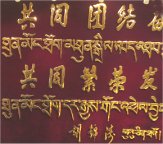 共同团结
ཐུན་མོང་ཐོག་མཐུན་སྒྲིལ་
共同繁荣发
ཐུན་མོང་ཐོག་དར་རྒྱས་གོང་འཕེལ་
胡锦涛